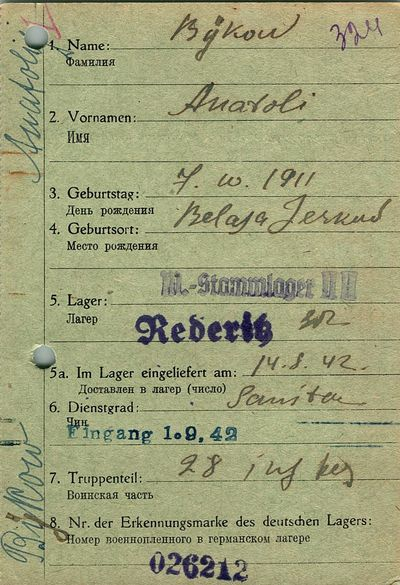 324
1. Name: Bÿkow
Фамилия
Anatoli
2. Vornamen:
Имя
3. Geburtstag: 7. 10. 1911
День рождения
4. Geburtsort: Belaja Zerkud
Место рождения
5. Lager: M.-Stammlager II H
Лагерь
Rederitz
5а. Im Lager eingeliefert am: 14.8.42.
Доставлен в лагерь (число)
6. Dienstgrad: Sanitä
Чин
Eingang 1.9.42
7. Truppenteil: 28 inf
Воинская часть
8. Nr. der Erkennungsmarke des deutschen Lagers:
Номер военнопленного в германском лагере
026212
Anatolij
Bÿkow